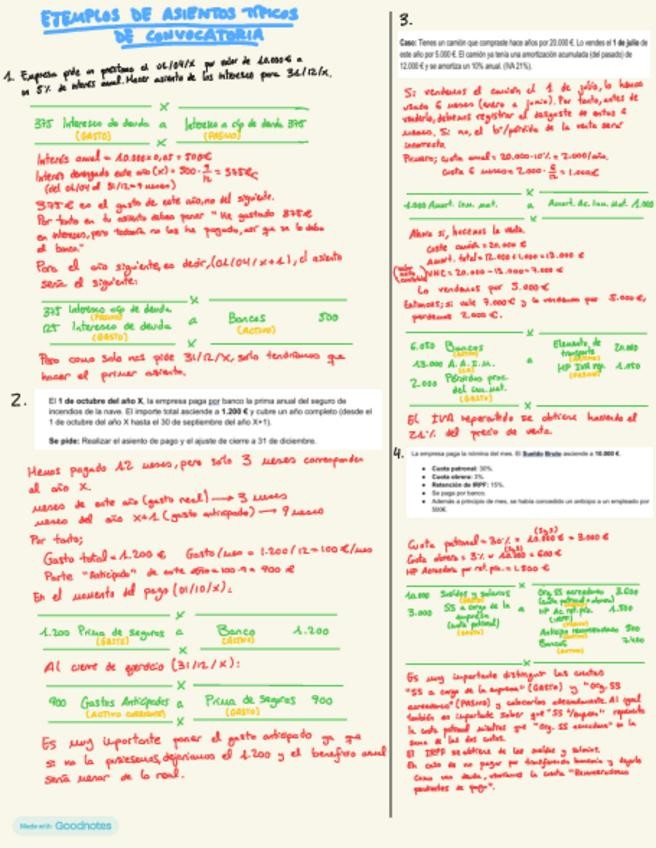 EJEMPLOS DE ASIENTOS TÍPICOS
DE CONVOCATORIA
1. Empresa pide un préstamo el 01/04/X por valor de 10.000 € a
un 5% de interés anual. Hacer asiento de los intereses para 31/12/X.
X
375 Intereses de deuda a Intereses a c/p de deuda 375
(GASTO) (PASIVO)
X
Interés anual = 10.000 × 0,05 = 500€
Interés devengado este año (X) = 500 · 9/12 = 375€
(del 01/04 al 31/12 → 9 meses)
375€ es el gasto de este año, no del siguiente.
Por tanto en tu asiento debes poner "He gastado 375€
en intereses, pero todavía no los he pagado, así que se lo debo
al banco."
Para el año siguiente, es decir, (01/04/X+1), el asiento
sería el siguiente:
X
375 Intereses a c/p de deuda
(PASIVO)
125 Intereses de deuda a Bancos 500
(GASTO) (ACTIVO)
X
Pero como solo nos pide 31/12/X, solo tendríamos que
hacer el primer asiento.
2.
El 1 de octubre del año X, la empresa paga por banco la prima anual del seguro de
incendios de la nave. El importe total asciende a 1.200 € y cubre un año completo (desde el
1 de octubre del año X hasta el 30 de septiembre del año X+1).
Se pide: Realizar el asiento de pago y el ajuste de cierre a 31 de diciembre.
Hemos pagado 12 meses, pero solo 3 meses corresponden
al año X.
meses de este año (gasto real) → 3 meses
meses del año X+1 (gasto anticipado) → 9 meses
Por tanto;
Gasto total = 1.200 € Gasto/mes = 1.200/12 = 100€/mes
Parte "Anticipada" de este año = 100·9 = 900 €
En el momento del pago (01/10/X):
X
1.200 Prima de Seguros a Banco 1.200
(GASTO) (ACTIVO)
X
Al cierre de ejercicio (31/12/X):
X
900 Gastos Anticipados a Prima de Seguros 900
(ACTIVO CORRIENTE) (GASTO)
X
Es muy importante poner el gasto anticipado ya que
si no la pusiésemos, dejaríamos el 1.200 y el beneficio anual
sería menor de lo real.
3.
Caso: Tienes un camión que compraste hace años por 20.000 €. Lo vendes el 1 de julio de
este año por 5.000 €. El camión ya tenía una amortización acumulada (del pasado) de
12.000 € y se amortiza un 10% anual. (IVA 21%).
Si vendemos el camión el 1 de julio, lo hemos
usado 6 meses (enero a junio). Por tanto, antes de
venderlo, debemos registrar el desgaste de estos 6
meses. Si no, el bº/pérdida de la venta será
incorrecta.
Primero; cuota anual = 20.000·10% = 2.000/año.
cuota 6 meses = 2.000 · 6/12 = 1.000€
X
1.000 Amort. inm. mat. a Amort. Ac. inm. mat. 1.000
X
Ahora sí, hacemos la venta.
Coste camión = 20.000 €
Amort. total = 12.000 + 1.000 = 13.000 €
(valor neto contable) VNC = 20.000 - 13.000 = 7.000 €
Lo vendemos por 5.000 €
Entonces; si vale 7.000 € y lo vendemos por 5.000 €,
perdemos 2.000 €.
X
6.050 Bancos Elemento de transporte 20.000
(ACTIVO)
13.000 A. A. I. M. a HP IVA rep. 1.050
(PASIVO)
2.000 Pérdidas proc. del inm. mat.
(GASTO)
X
El IVA repercutido se obtiene haciendo el
21% del precio de venta.
4.
La empresa paga la nómina del mes. El Sueldo Bruto asciende a 10.000 €.
• Cuota patronal: 30%.
• Cuota obrera: 6%.
• Retención de IRPF: 15%.
• Se paga por banco.
• Además a principio de mes, se había concedido un anticipo a un empleado por
500€.
Cuota patronal = 30% × 10.000 € = 3.000 €
HP Acreedora por ret. pra. = 1.500 €
X
10.000 Sueldos y salarios Org. SS acreedores 3.600
(GASTO) (cuota patronal + obrera)
3.000 SS a cargo de la empresa a HP Ac. ret. pra. 1.500
(cuota patronal) (IRPF)
(GASTO) (PASIVO)
Anticipo remuneraciones 500
Bancos 7.400
(ACTIVO)
X
Es muy importante distinguir las cuentas
"SS a cargo de la empresa" (GASTO) y "Org. SS
acreedores" (PASIVO) y colocarlos adecuadamente. Al igual
también es importante saber que "SS c/empresa" representa
la cuota patronal mientras que "Org. SS acreedores" es la
suma de las dos cuotas.
El IRPF se obtiene de los sueldos y salarios.
En caso de no pagar por transferencia bancaria y dejarlo
como una deuda, usaríamos la cuenta "Remuneraciones
pendientes de pago".
Made with Goodnotes